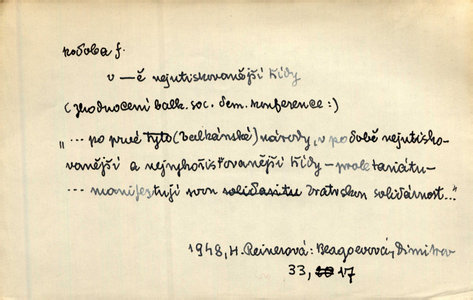 podoba f.
v —ě nejutiskovanější třídy
(zhodnocení balk. soc. dem. konference:)
„... po prvé tyto (balkánské) národy „v podobě nejutisko-
vanější a nejvykořisťovanější třídy – proletariátu –
... manifestují svou solidaritu bratrskou solidárnost..."
1948, H. Reinerová: Blagoevová, Dimitrov
33, 17